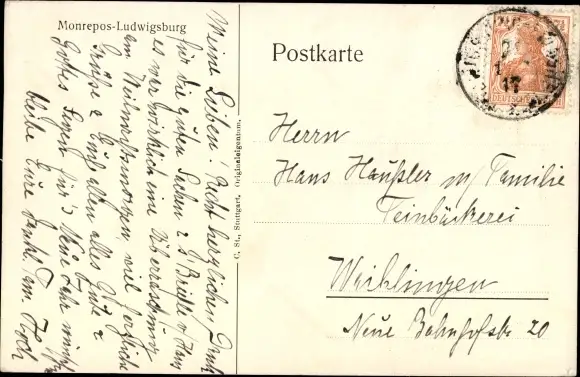 Monrepos-Ludwigsburg
Meine Lieben! Recht herzlichen Dank
für die guten Sachen & d. Briefle v. Hans
es war wirklich eine Überraschung
am Weihnachtsmorgen, viel herzliche
Grüße & Euch allen alles Gute &
Gottes Segen für's Neue Jahr wünscht
Eure dankb.
C. St., Stuttgart, Originaleigentum.
Postkarte
DEUTSCHES
17
Herrn
Hans Häußler m/ Familie
Feinbäckerei
Waiblingen
Neue Bahnhofstr. 20